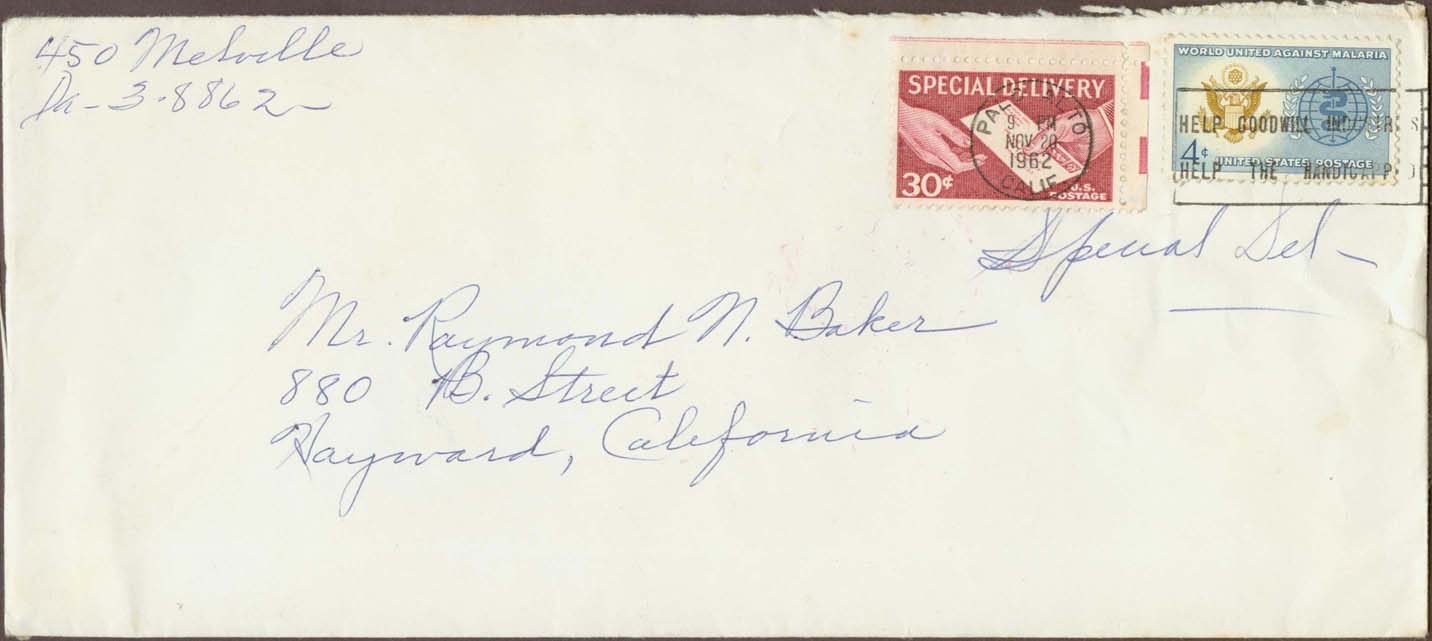 450 Melville
Da-3-8862
SPECIAL DELIVERY
30¢
U.S.
POSTAGE
PALO ALTO
9 PM
NOV 20
1962
CALIF.
WORLD UNITED AGAINST MALARIA
4¢ UNITED STATES POSTAGE
HELP GOODWILL INDUSTRIES
HELP THE HANDICAPPED
Special Del-
Mr. Raymond N. Baker
880 B. Street
Hayward, California